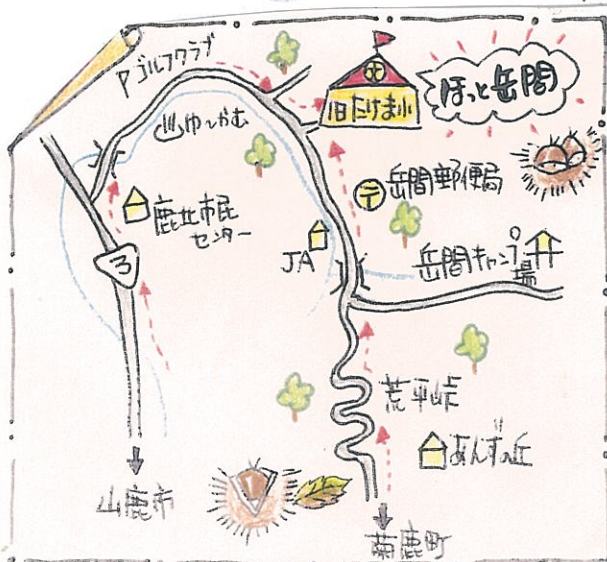 Pゴルフクラブ
ゆ〜かむ
旧たけま小
ほっと岳間
〒
岳間郵便局
鹿北市民
センター
3
JA
岳間キャンプ
場
荒平峠
あんずの丘
山鹿市
菊鹿町